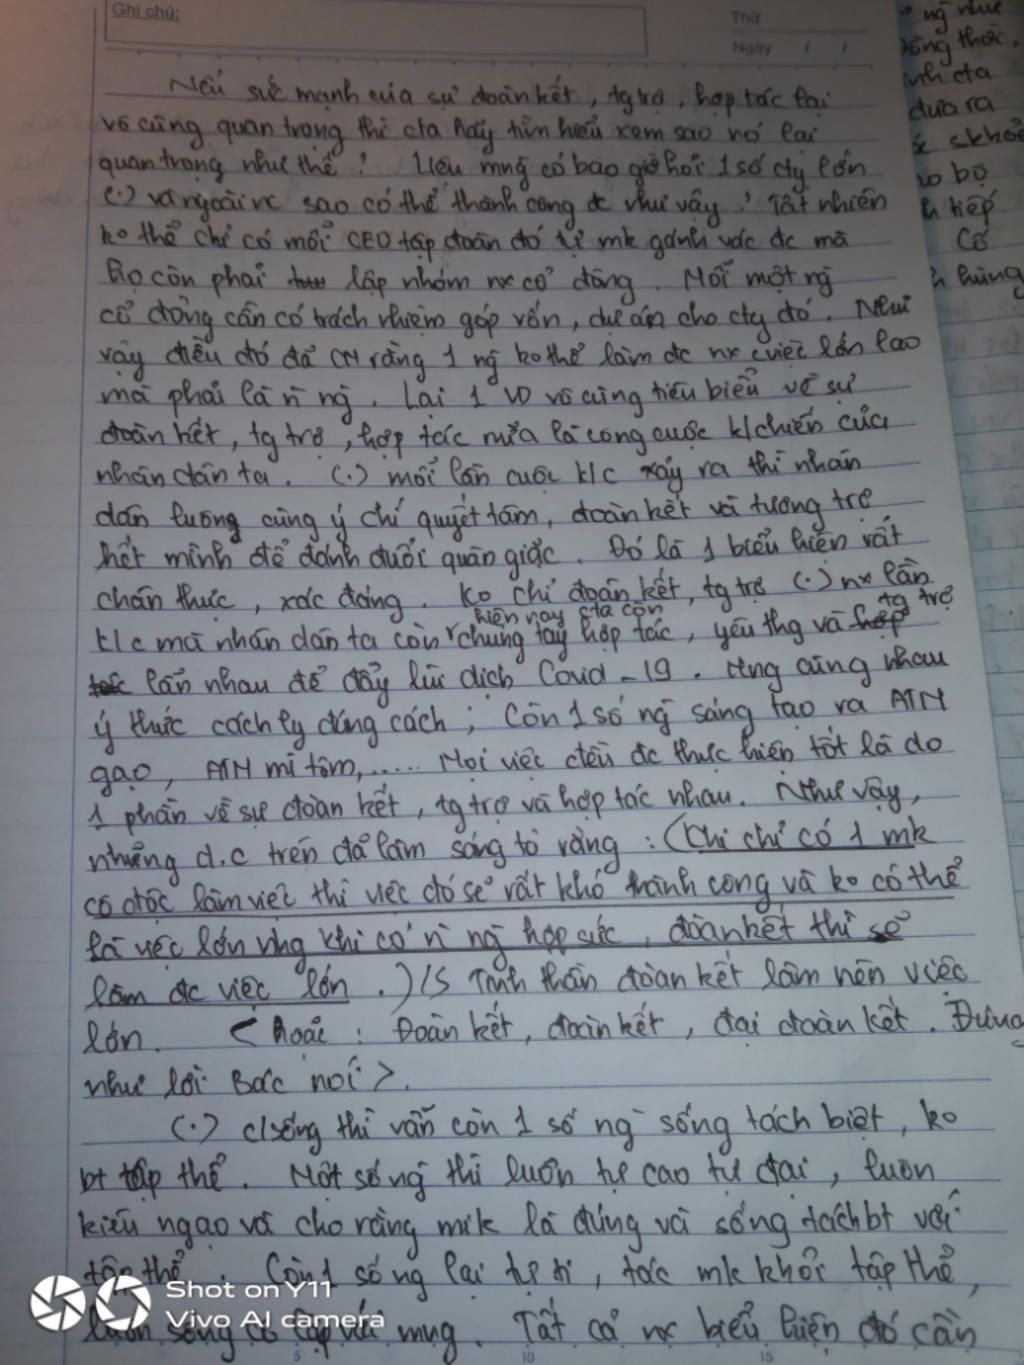 Ghi chú:
Thứ
Ngày / /
Nếu sức mạnh của sự đoàn kết, tg trợ, hợp tác lại
vô cùng quan trọng thì cta hãy tìm hiểu xem sao nó lại
quan trọng như thế? Liệu mng có bao giờ hỏi 1 số cty lớn
(.) và ngoài nc sao có thể thành công đc như vậy? Tất nhiên
ko thể chỉ có mỗi CEO tập đoàn đó tự mk gánh vác đc mà
họ còn phải lập nhóm nx cổ đông. Mỗi một ng
cổ đông cần có trách nhiệm góp vốn, dự án cho cty đó. Như
vậy điều đó đã CM rằng 1 ng ko thể làm đc nx cviệc lớn lao
mà phải là n ng. Lại 1 VD vô cùng tiêu biểu về sự
đoàn kết, tg trợ, hợp tác nữa là công cuộc k/chiến của
nhân dân ta. (.) mỗi lần cuộc k/c xảy ra thì nhân
dân luông cùng ý chí quyết tâm, đoàn kết và tương trợ
hết mình để đánh đuổi quân giặc. Đó là 1 biểu hiện rất
chân thực, xác đáng. Ko chỉ đoàn kết, tg trợ (.) nx lần
hiện nay cta còn tg trợ
k/c mà nhân dân ta còn chung tay hợp tác, yêu thg và hợp
tác lẫn nhau để đẩy lùi dịch Covid-19. mng cùng nhau
ý thức cách ly đúng cách; Còn 1 số ng sáng tạo ra ATM
gạo, ATM mì tôm,..... Mọi việc đều đc thực hiện tốt là do
1 phần về sự đoàn kết, tg trợ và hợp tác nhau. Như vậy,
những d.c trên đã làm sáng tỏ rằng: (Khi chỉ có 1 mk
cô độc làm việc thì việc đó sẽ rất khó thành công và ko có thể
là việc lớn nhg khi có n ng hợp sức, đoàn kết thì sẽ
làm đc việc lớn.) /S Tinh thần đoàn kết làm nên việc
lớn. < hoặc: Đoàn kết, đoàn kết, đại đoàn kết. Đúng
như lời Bác nói >.
(.) c/sống thì vẫn còn 1 số ng sống tách biệt, ko
bt tập thể. Một số ng thì luôn tự cao tự đại, luôn
kiêu ngạo và cho rằng mk là đúng và sống tách bt với
tập thể. Còn 1 số ng lại tự ti, tác mk khỏi tập thể,
luôn sống cô lập với mng. Tất cả nx biểu hiện đó cần
ng như
Đồng thời,
cta
đưa ra
bộ
tiếp
Cô
hùng
Shot on Y11
Vivo AI camera
5
10
15